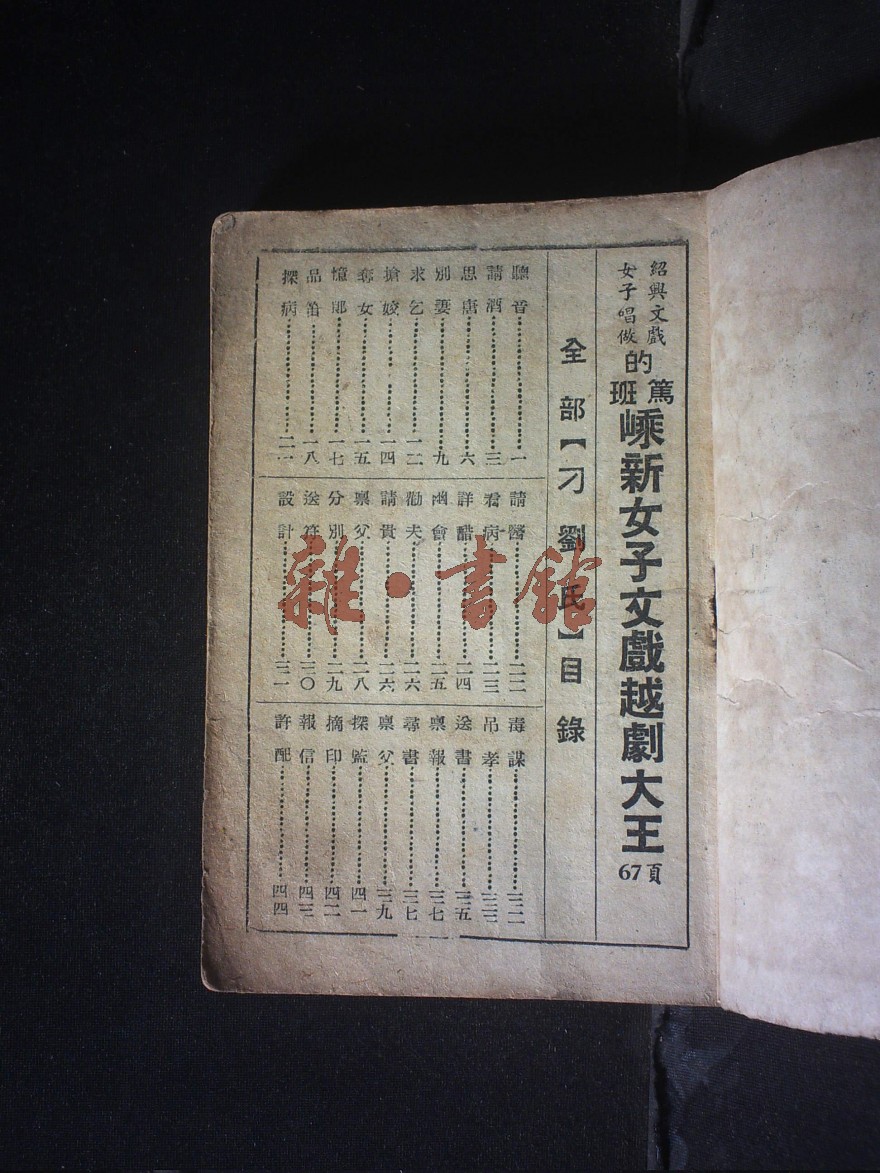 紹興文戲
女子唱做
的
篤班
嵊新女子文戲越劇大王
67頁
全部【刁劉氏】目錄
聽音………一
請酒………三
思唐………六
別妻………九
求乞………一二
搶姣………一四
奪女………一五
憶郎………一七
品笛………一八
探病………二一
請醫………二二
看病………二三
詳醋………二四
幽會………二五
勸夫………二六
請貴………二六
禀父………二八
分別………二九
送符………三〇
設計………三一
毒謀………三二
吊孝………三三
送書………三五
禀報………三七
尋書………三七
禀父………三九
探監………四一
摘印………四二
報信………四三
許配………四四
雜·書館